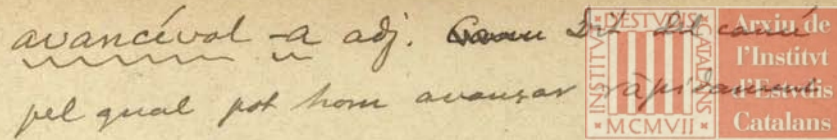 avancívol -a adj. Dit del camí
pel qual pot hom avançar ràpidament
INSTITVT D'ESTVDIS CATALANS
MCMVII
Arxiu de
l'Institvt
d'Estvdis
Catalans